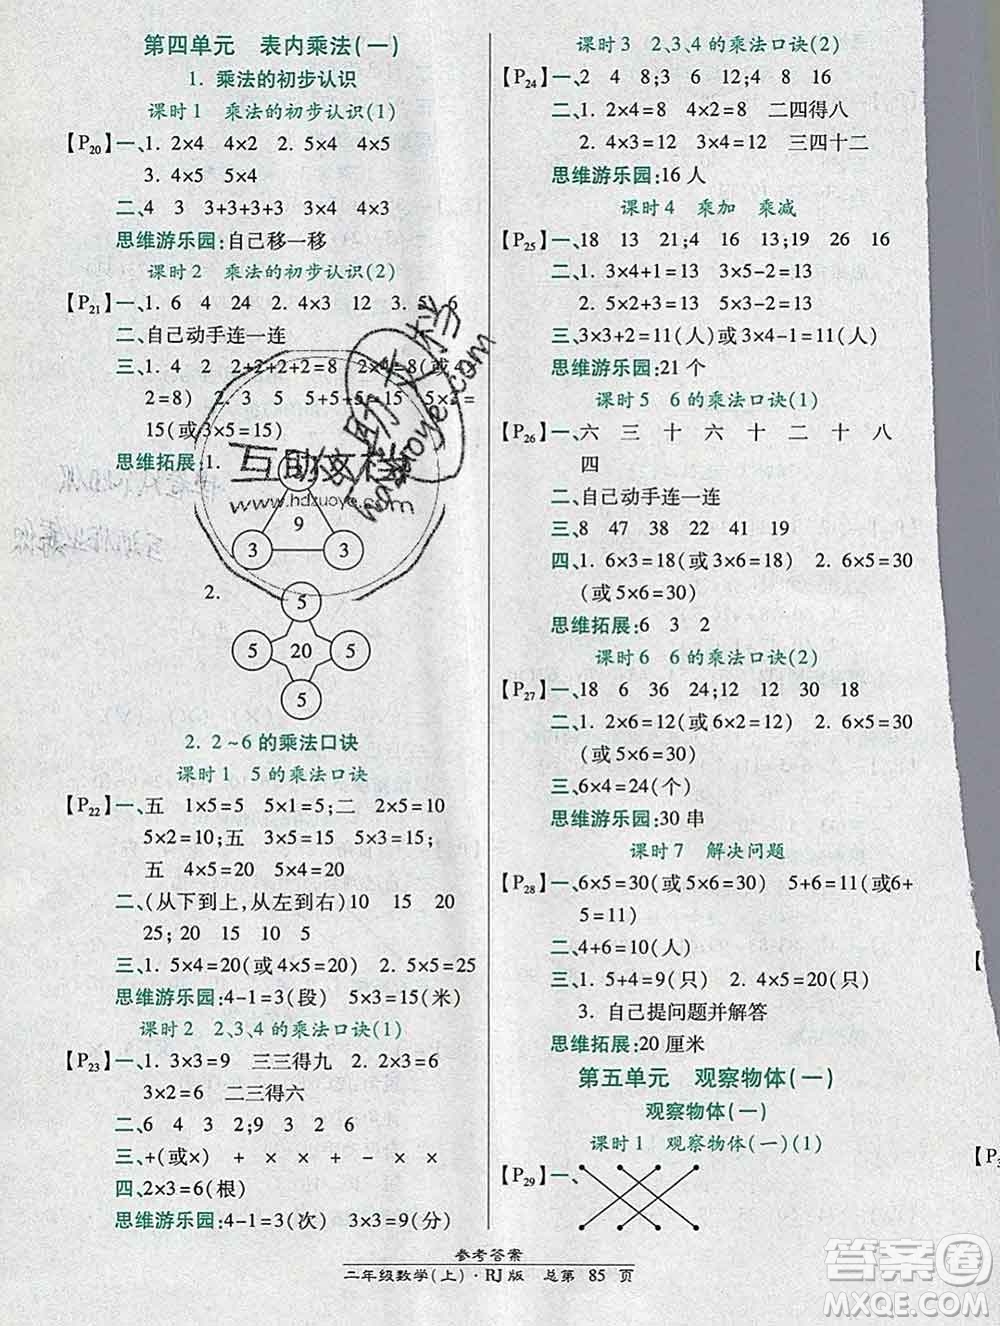 第四单元　表内乘法(一)
1. 乘法的初步认识
课时1　乘法的初步认识(1)
【P20】一、1. 2×4　4×2　2. 5×4　4×5
3. 4×5　5×4
二、4　3　3+3+3+3　3×4　4×3
思维游乐园:自己移一移
课时2　乘法的初步认识(2)
【P21】一、1. 6　4　24　2. 4×3　12　3. 5　6
二、自己动手连一连
三、1. 4　2　2+2+2+2=8　2×4=8(或4×
2=8)　2. 3　5　5+5+5=15　5×3=
15(或3×5=15)
思维拓展:1.
3
9
3　3
2.
5
5　20　5
5
2. 2~6的乘法口诀
课时1　5的乘法口诀
【P22】一、五　1×5=5　5×1=5;二　2×5=10
5×2=10;五　3×5=15　5×3=15;
五　4×5=20　5×4=20
二、(从下到上,从左到右)10　15　20
25;20　5　10　15　20
三、1. 5×4=20(或4×5=20)　2. 5×5=25
思维游乐园:4-1=3(段)　5×3=15(米)
课时2　2、3、4的乘法口诀(1)
【P23】一、1. 3×3=9　三三得九　2. 2×3=6
3×2=6　二三得六
二、6　4　3　2;9　2　3　2　6
三、+(或×)　×　+　×　×　-　×
四、2×3=6(根)
思维游乐园:4-1=3(次)　3×3=9(分)
课时3　2、3、4的乘法口诀(2)
【P24】一、2　4　8;3　6　12　4　8　16
二、1. 2×4=8　4×2=8　二四得八
2. 4×3=12　3×4=12　三四十二
思维游乐园:16人
课时4　乘加　乘减
【P25】一、18　13　21;4　16　13　9　16
二、1. 4×3+1=13　4×4-3=13
2. 5×2+3=13　5×3-2=13
三、3×3+2=11(人)或3×4-1=11(人)
思维游乐园:21个
课时5　6的乘法口诀(1)
【P26】一、六　三　十　六　十　二　十　八
四
二、自己动手连一连
三、8　47　38　22　41　19
四、1. 6×3=18(或3×6=18)　2. 6×5=30
(或5×6=30)
思维拓展:6　3　2
课时6　6的乘法口诀(2)
【P27】一、18　6　36　24;12　12　30　18
二、1. 2×6=12(或6×2=12)　2. 6×5=30
(或5×6=30)
三、6×4=24(个)
思维游乐园:30串
课时7　解决问题
【P28】一、6×5=30(或5×6=30)　5+6=11(或6+
5=11)
二、4+6=10(人)
三、1. 5+4=9(只)　2. 4×5=20(只)
3. 自己提问题并解答
思维拓展:20厘米
第五单元　观察物体(一)
观察物体(一)
课时1　观察物体(一)(1)
【P29】一、
参考答案
二年级数学(上)·RJ版　总第　85　页
互助文档
www.hdzuoye.com
答案圈
MXQE.COM